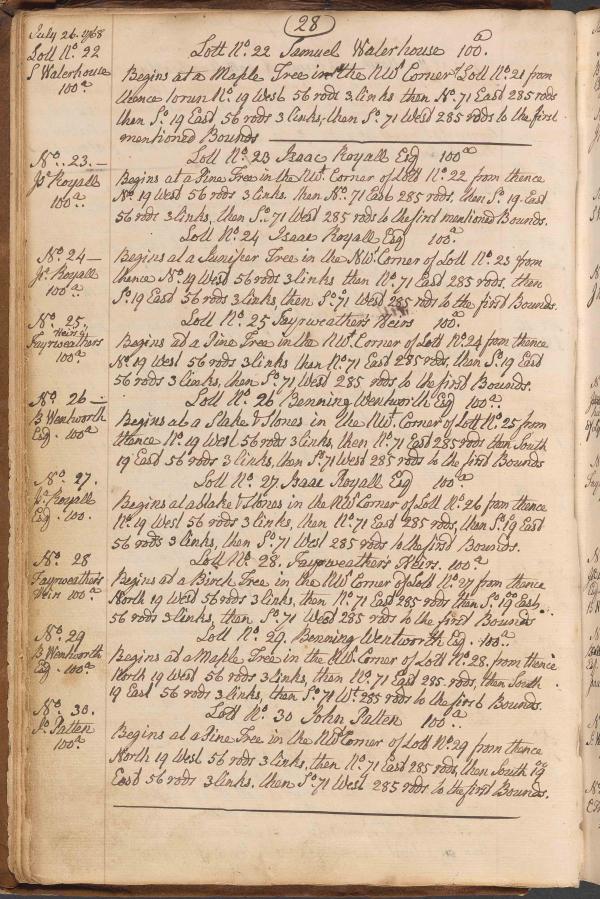 28
July 26. 1768
Lott No. 22
S Waterhouse
100a.
Lott No. 22 Samuel Waterhouse 100a.
Begins at a Maple Tree in the NWt Corner of Lott No. 21 from
thence to run No. 19 West 56 rods 3 links then No. 71 East 285 rods
then So. 19 East 56 rods 3 links, then So. 71 West 285 rods to the first
mentioned Bounds
No. 23.
Js. Royall
100a.
Lott No. 23 Isaac Royall Esq 100a
Begins at a Pine Tree in the NWt. Corner of Lott No. 22 from thence
No. 19 West 56 rods 3 links, then No. 71 East 285 rods, then So. 19 East
56 rods 3 links, then So. 71 West 285 rods to the first mentioned Bounds.
No. 24
Js. Royall
100a
Lott No. 24 Isaac Royall Esq 100a.
Begins at a Juniper Tree in the NWt. Corner of Lott No. 23 from
thence No. 19 West 56 rods 3 links then No. 71 East 285 rods, then
So. 19 East 56 rods 3 links, then So. 71 West 285 rods to the first Bounds.
No. 25.
Heirs of
Fayrweathers
100a.
Lott No. 25 Fayrweather's Heirs 100a.
Begins at a Pine Tree in the NWt. Corner of Lott No. 24 from thence
No. 19 West 56 rods 3 links then No. 71 East 285 rods, then So. 19 East
56 rods 3 links, then So. 71 West 285 rods to the first Bounds.
No. 26
B Wentworth
Esq. 100a
Lott No. 26 Benning Wentworth Esq 100a.
Begins at a Stake & Stones in the NWt. Corner of Lott No. 25 from
thence No. 19 West 56 rods 3 links, then No. 71 East 285 rods then South
19 East 56 rods 3 links, then So. 71 West 285 rods to the first Bounds
No. 27.
Js. Royall
Esq. 100.
Lott No. 27 Isaac Royall Esq 100a
Begins at a Stake & Stones in the NWt Corner of Lott No. 26 from thence
No. 19 West 56 rods 3 links, then No. 71 East 285 rods, then So. 19 East
56 rods 3 links, then So. 71 West 285 rods to the first Bounds.
No. 28
Fayrweather's
Heir 100a.
Lott No. 28. Fayrweather's Heirs. 100a.
Begins at a Birch Tree in the NWt Corner of Lott No. 27 from thence
North 19 West 56 rods 3 links, then No. 71 East 285 rods then So. 19 East
56 rods 3 links, then So. 71 West 285 rods to the first Bounds
No. 29
B Wentworth
Esq. 100a.
Lott No. 29. Benning Wentworth Esq. 100a.
Begins at a Maple Tree in the NWt Corner of Lott No. 28. from thence
North 19 West 56 rods 3 links, then No. 71 East 285 rods, then South
19 East 56 rods 3 links, then So. 71 Wt. 285 rods to the first Bounds.
No. 30.
Jo. Patten
100a.
Lott No. 30 John Patten 100a.
Begins at a Pine Tree in the NWt. Corner of Lott No. 29 from thence
North 19 West 56 rods 3 links, then No. 71 East 285 rods, then South 19
East 56 rods 3 links, then So. 71 West 285 rods to the first Bounds.